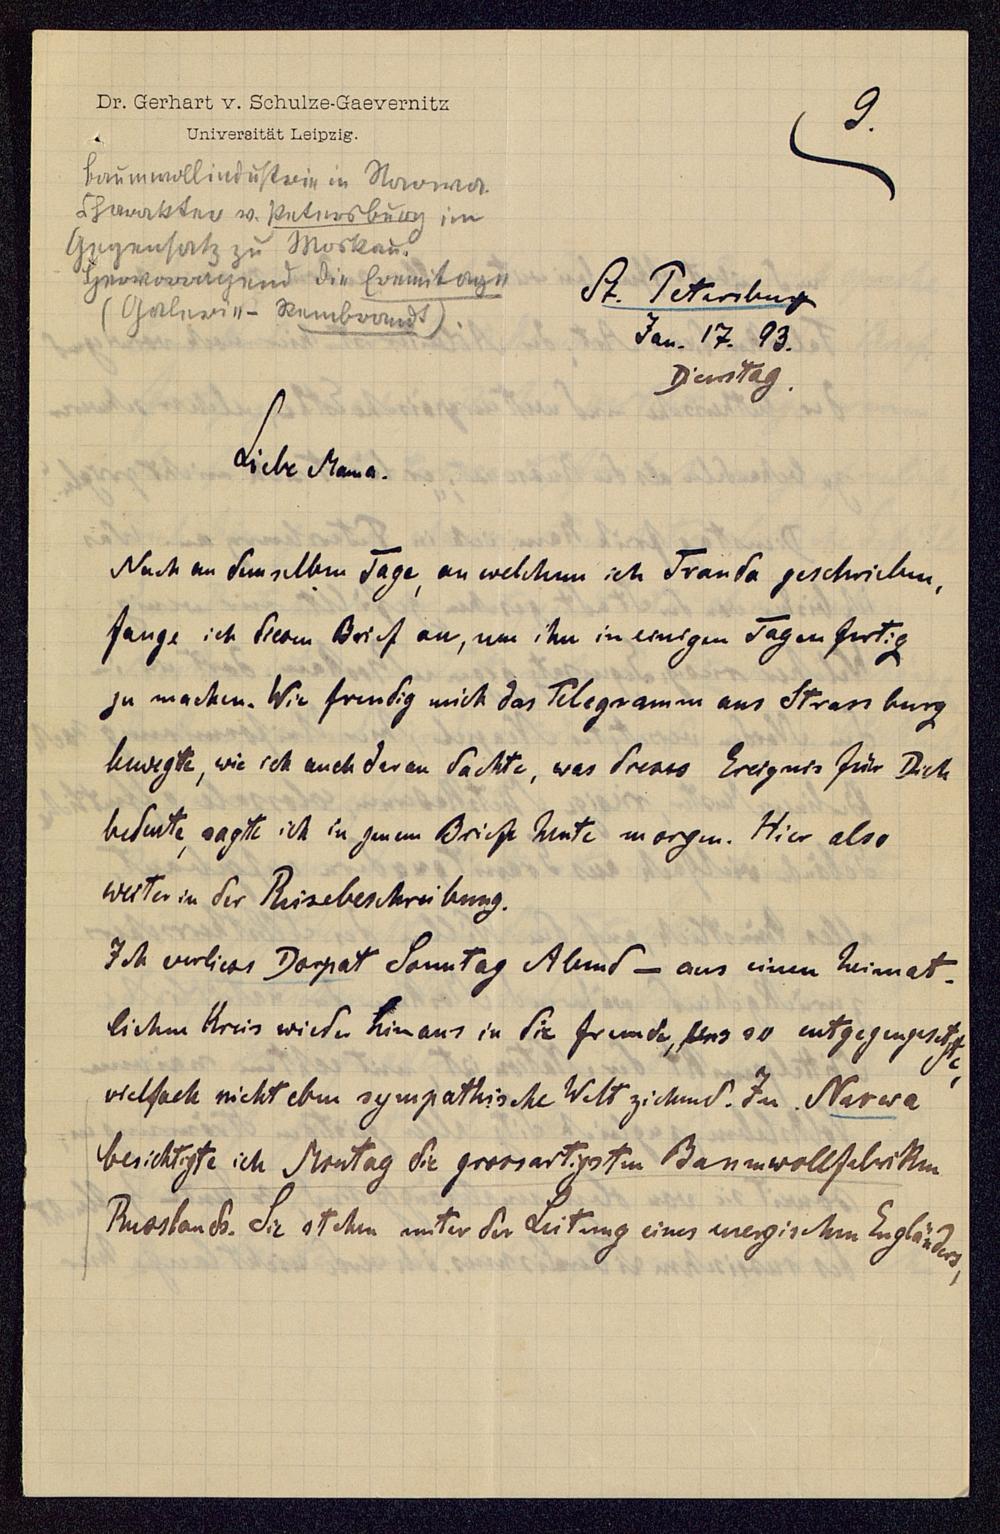 Dr. Gerhart v. Schulze-Gaevernitz
Universität Leipzig.
9.
Baumwollindustrie in Narwa.
Charakter v. Petersburg im
Gegensatz zu Moskau.
Hervorragend die Eremitage
(Galerie - Rembrandt).
St. Petersburg
Jan. 17. 93.
Dienstag.
Liebe Mama.
Noch an demselben Tage, an welchem ich geschrieben,
fange ich diesen Brief an, um ihn in einigen Tagen fertig
zu machen. Wie freudig mich das Telegramm aus Strassburg
bewegte, wie ich auch daran dachte, was dieses Ereignis für Dich
bedeute, sagte ich in jenem Briefe heute morgen. Hier also
weiter in der Reisebeschreibung.
Ich verliess Dorpat Sonntag Abend — aus einem heimat-
lichen Kreis wieder hinaus in die fremde, uns so entgegengesetzte,
vielfach nicht eben sympathische Welt ziehend. In Narwa
besichtigte ich Montag die grossartigsten Baumwollfabriken
Russlands. Sie stehen unter der Leitung eines energischen Engländers,